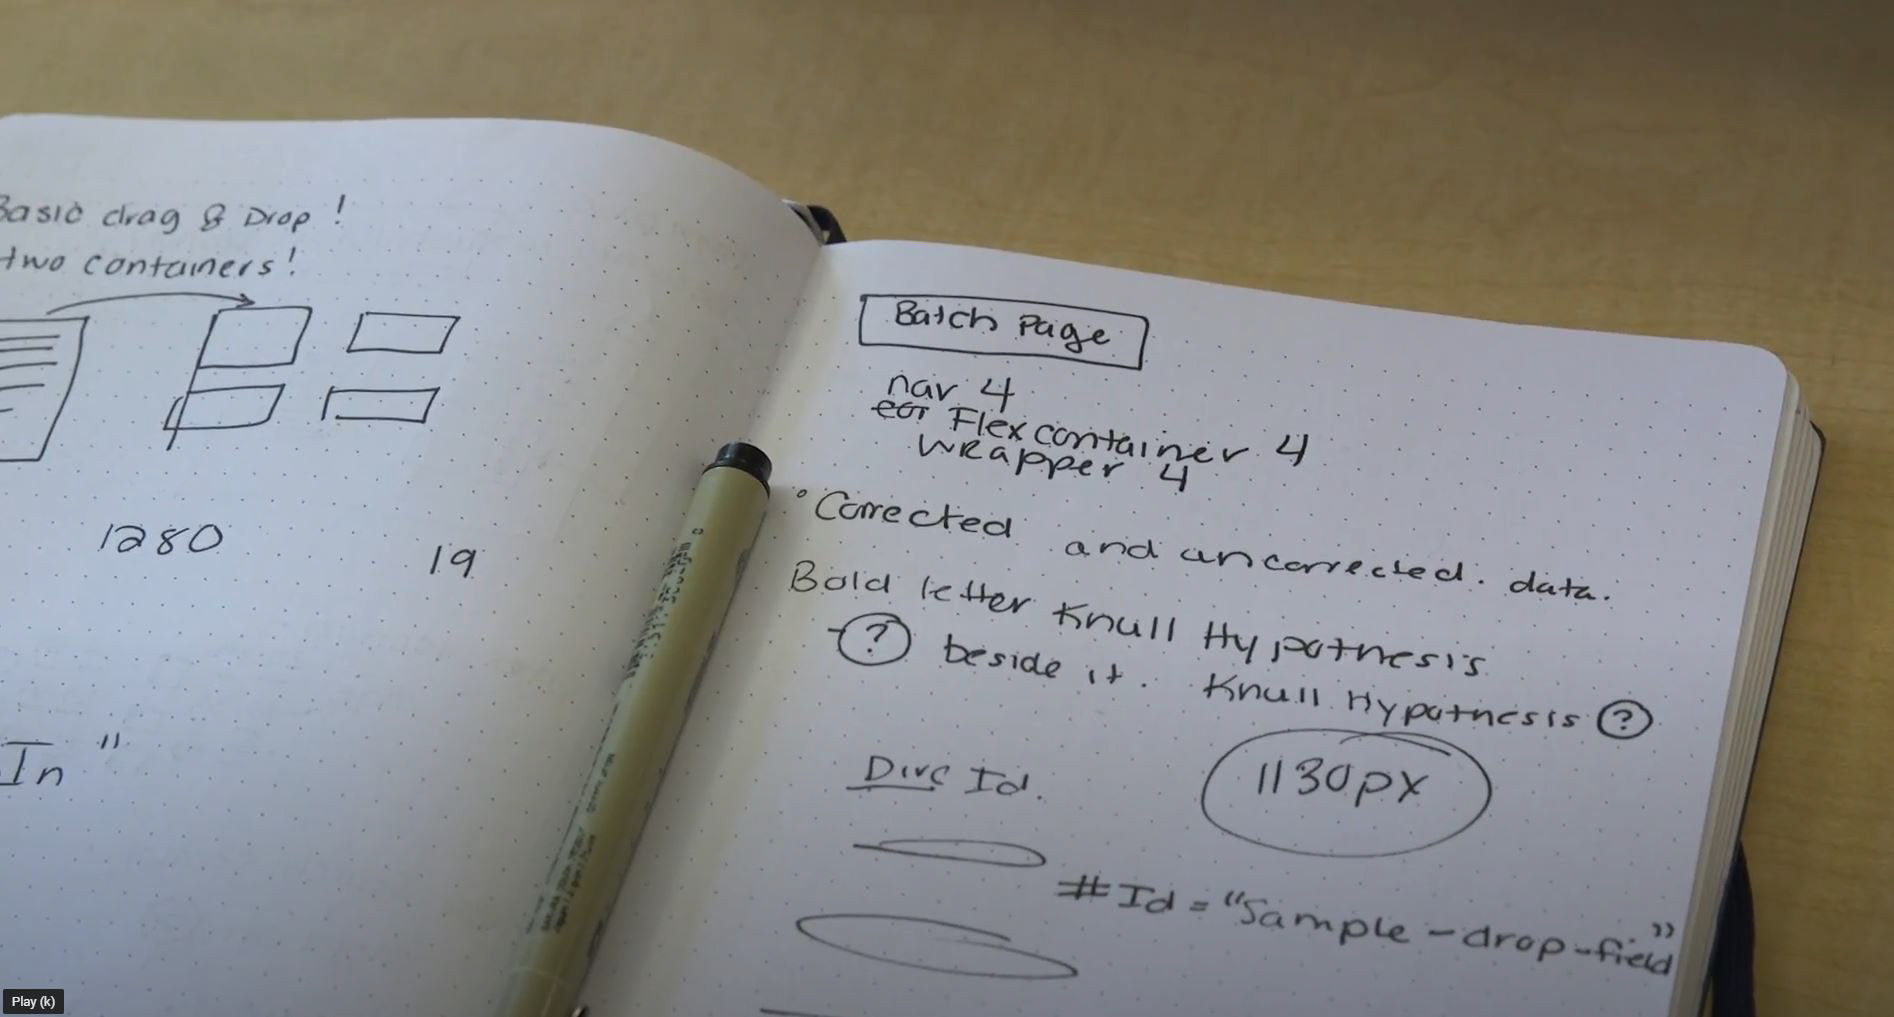 Basic drag & Drop!
two containers!
1280
19
In "
Batch Page
nav 4
Flex container 4
wrapper 4
Corrected and uncorrected. data.
Bold letter Knull Hypothesis
- ? beside it. Knull Hypothesis ?
Divs Id.
1130px
#Id = "Sample-drop-field"
Play (k)